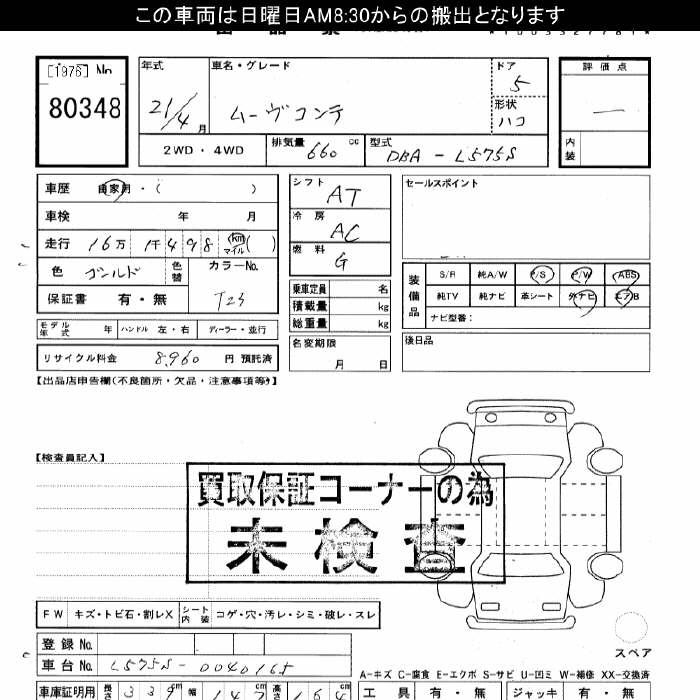 この車両は日曜日AM8:30からの搬出となります
[1976] No
80348
年式
21/4 月
車名・グレード
ムーヴコンテ
ドア
5
形状
ハコ
評価点
—
内装
2WD・4WD
排気量 660 cc
型式 DBA - L575S
車歴 自家用・( )
車検 年 月
走行 16万 1千498 km マイル ( )
色 ゴールド
色替
カラーNo.
T23
保証書 有・無
シフト AT
冷房 AC
燃料 G
乗車定員 名
積載量 kg
総重量 kg
セールスポイント
装備品
S/R 純A/W P/S P/W ABS
純TV 純ナビ 革シート 外ナビ エアB
ナビ型番:
モデル年式 年 ハンドル 左・右 ディーラー・並行
リサイクル料金 8,960 円 預託済
名変期限
月 日
後日品
【出品店申告欄(不良箇所・欠品・注意事項等)】
【検査員記入】
買取保証コーナーの為
未検査
FW キズ・トビ石・割レX シート内装 コゲ・穴・汚レ・シミ・破レ・スレ
スペア
登録No.
車台No. L575S-0040165
A-キズ C-腐食 E-エクボ S-サビ U-凹ミ W-補修 XX-交換済
車庫証明用 長さ 339 cm 幅 147 高さ 164 cm
工具 有・無 ジャッキ 有・無